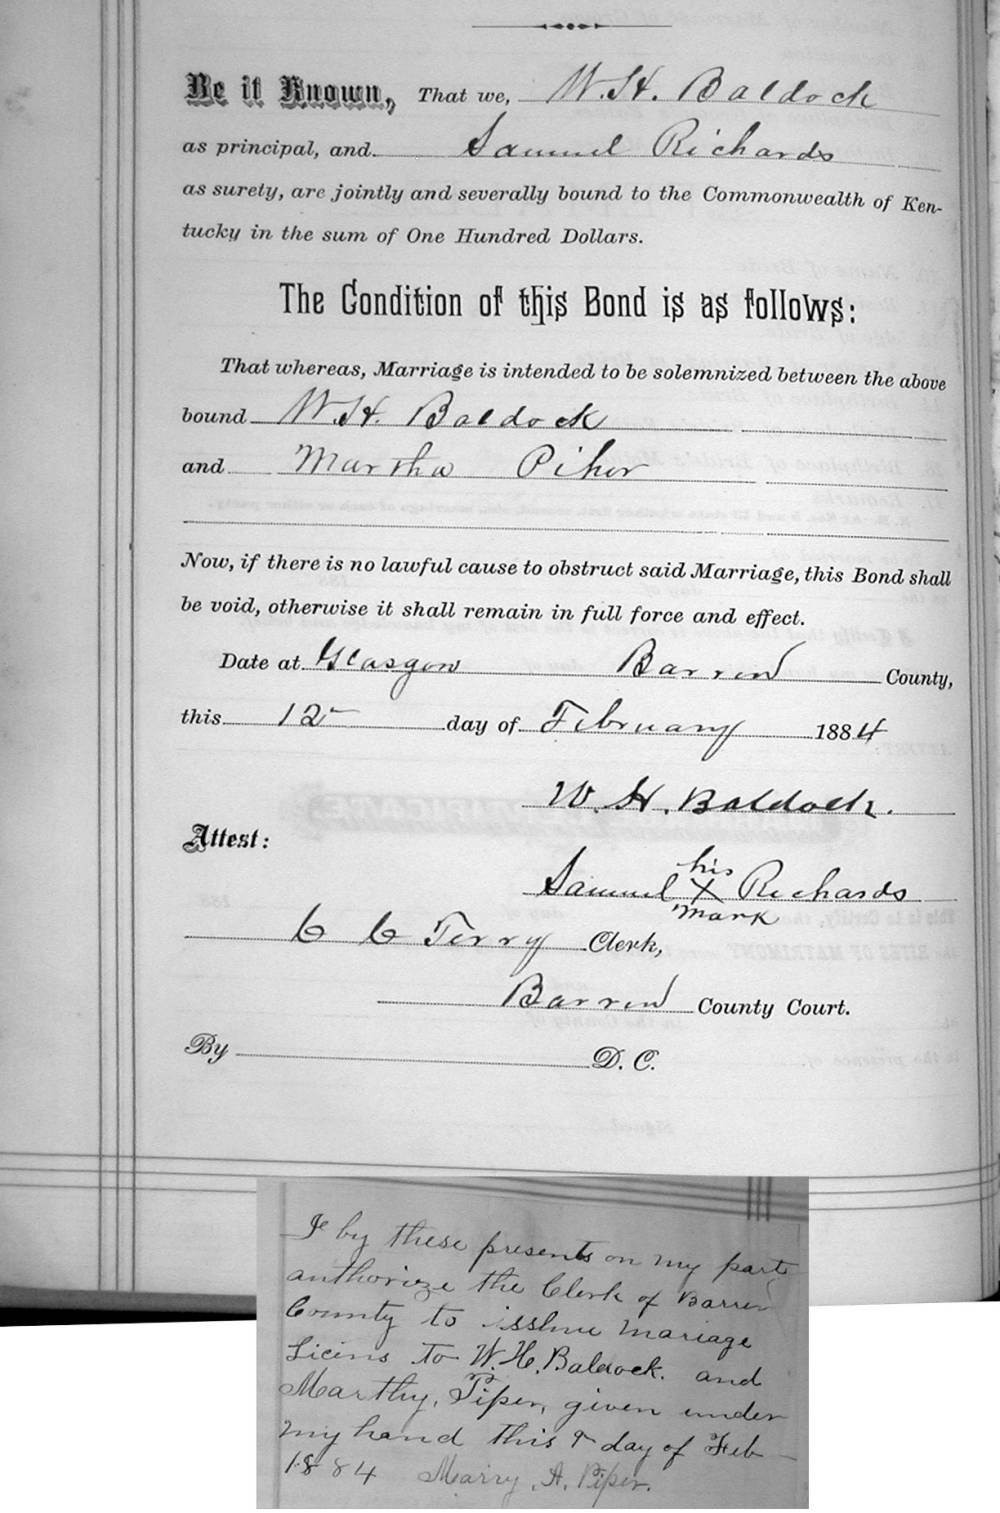 Be it Known, That we, W. H. Baldock
as principal, and Samuel Richards
as surety, are jointly and severally bound to the Commonwealth of Ken-
tucky in the sum of One Hundred Dollars.
The Condition of this Bond is as follows:
That whereas, Marriage is intended to be solemnized between the above
bound W. H. Baldock
and Martha Piper
Now, if there is no lawful cause to obstruct said Marriage, this Bond shall
be void, otherwise it shall remain in full force and effect.
Date at Glasgow Barren County,
this 12 day of February 1884
W. H. Baldock.
Attest:
his
Samuel X Richards
mark
C C Terry Clerk,
Barren County Court.
By D. C.
I by these presents on my part
authorize the Clerk of Barren
County to isshue mariage
Licins to W. H. Baldock. and
Marthy. Piper, given under
my hand this 9 day of Feb
1884 Marry. A. Piper.